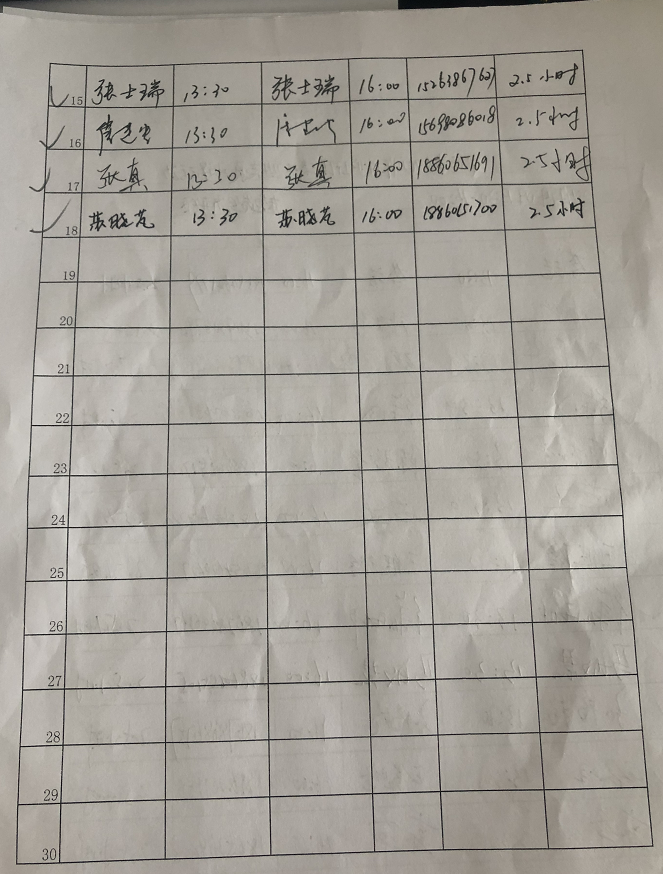 15 张士瑞 13:30 张士瑞 16:00 15263867627 2.5小时
16 13:30 16:00 15698086018 2.5小时
17 张真 13:30 张真 16:00 18860651691 2.5小时
18 苏晓艺 13:30 苏晓艺 16:00 2.5小时
19
20
21
22
23
24
25
26
27
28
29
30